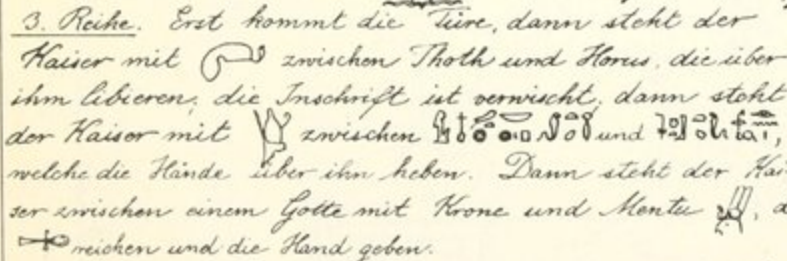 3. Reihe. Erst kommt die Türe, dann steht der
Kaiser mit zwischen Thoth und Horus, die über
ihm libieren; die Inschrift ist verwischt; dann steht
der Kaiser mit zwischen und
welche die Hände über ihn heben. Dann steht der Kai-
ser zwischen einem Gotte mit Krone und Mentu,
reichen und die Hand geben.